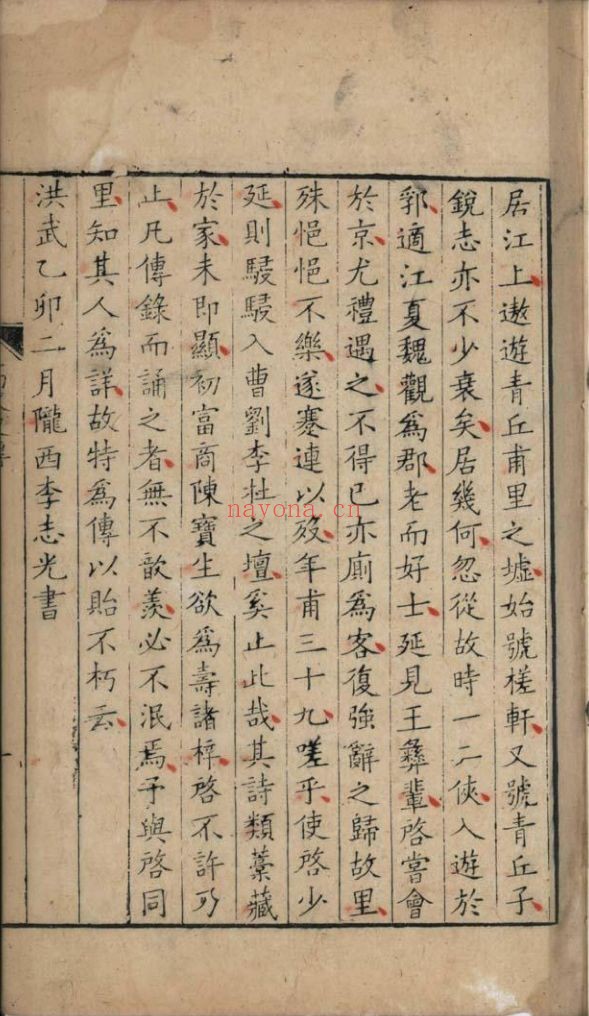 居江上遨遊青丘甫里之墟始號槎軒又號青丘子
銳志亦不少衰矣居幾何忽從故時一二俠入遊於
郛適江夏魏觀爲郡老而好士延見王彝輩啓嘗會
於京尤禮遇之不得已亦廁爲客復強辭之歸故里
殊悒悒不樂遂蹇連以歿年甫三十九嗟乎使啓少
延則駸駸入曹劉李杜之壇奚止此哉其詩類藁藏
於家未即顯初富商陳寶生欲爲壽諸梓啓不許乃
止凡傳錄而誦之者無不歆羨必不泯焉予與啓同
里知其人爲詳故特爲傳以貽不朽云
洪武乙卯二月隴西李志光書
nayona.cn